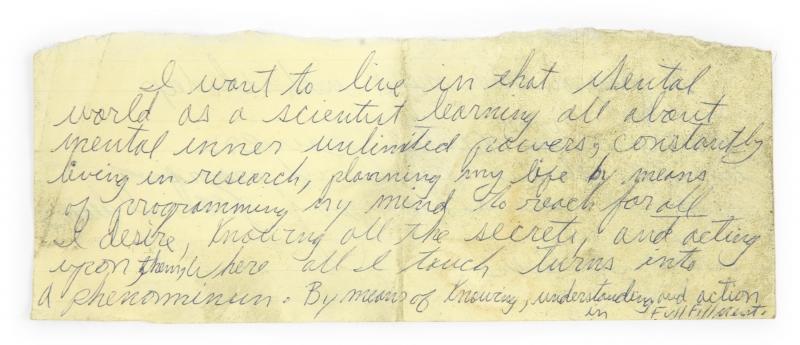 I want to live in that Mental
world as a scientist learning all about
mental inner unlimited powers, constantly
living in research, planning my life by means
of programming my mind to reach for all
I desire, Knowing all the secrets, and acting
upon them, Where all I touch turns into
a phenominum. By means of Knowing, understanding, and action
in Full Fillment.